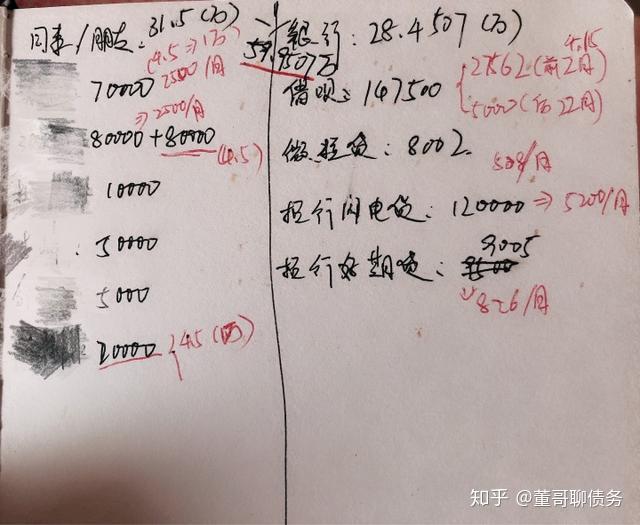 同事/朋友: 31.5(万)
(4.5⇒1万)
70000 2500/月
⇒2500/月
80000+80000
(4.5)
10000
50000
5000
20000 4.5(万)
59.9507万
银行: 28.4507(万)
4.15
借呗: 147500
27562(前2月)
5000(后22月)
微粒贷: 8002
508/月
招行闪电贷: 120000⇒5200/月
9005
招行好期贷:
826/月
知乎 @董哥聊债务